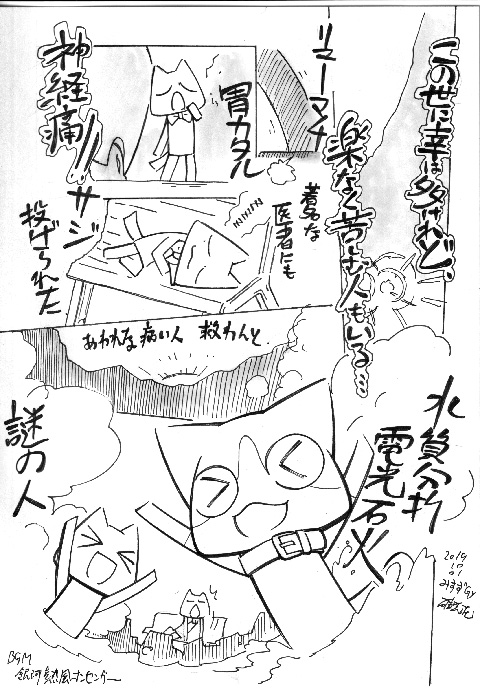 この世に幸は多けれど、
楽なく苦しむ人もいる…
リマーマチ
胃カタル
神経痛!!
著名な
医者にも
サジ
投げられた
あわれな病い人 救わんと
水質分析
電光石火
謎の人
2019
10
01
BGM
銀河熱風オンセンガー